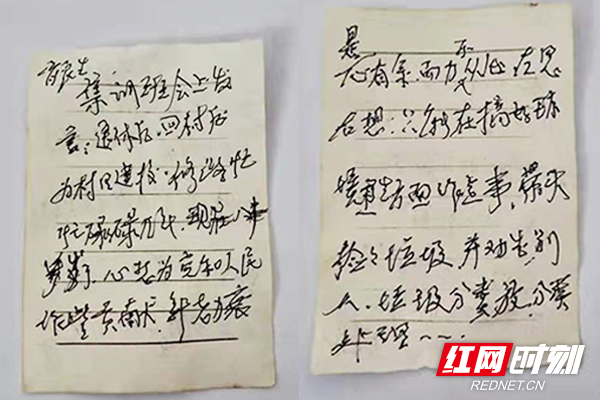 集训班会上发
言：退休后，回村后
为村里建校、修路忙
忙碌碌几年，现在八事
岁，心想为家乡人民
作些贡献，年老力衰
是
心有余而力不从心，左思
右想：只能在搞好环
境卫生方面作些事，带头
捡垃圾，并劝告别
人，垃圾分类放，分类
处理～～
红网时刻
REDNET.CN